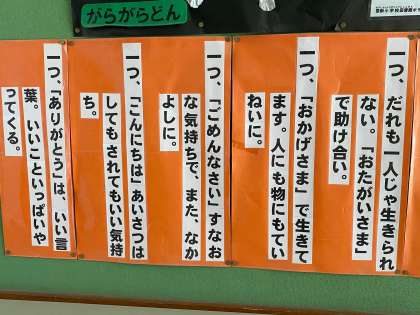 がらがらどん
一つ、だれも一人じゃ生きられ
ない。「おたがいさま」
で助け合い。
一つ、「おかげさま」で生きて
ます。人にも物にもてい
ねいに。
一つ、「ごめんなさい」すなお
な気持ちで、また、なか
よしに。
一つ、「こんにちは」あいさつは
してもされてもいい気持
ち。
一つ、「ありがとう」は、いい言
葉。いいこといっぱいや
ってくる。